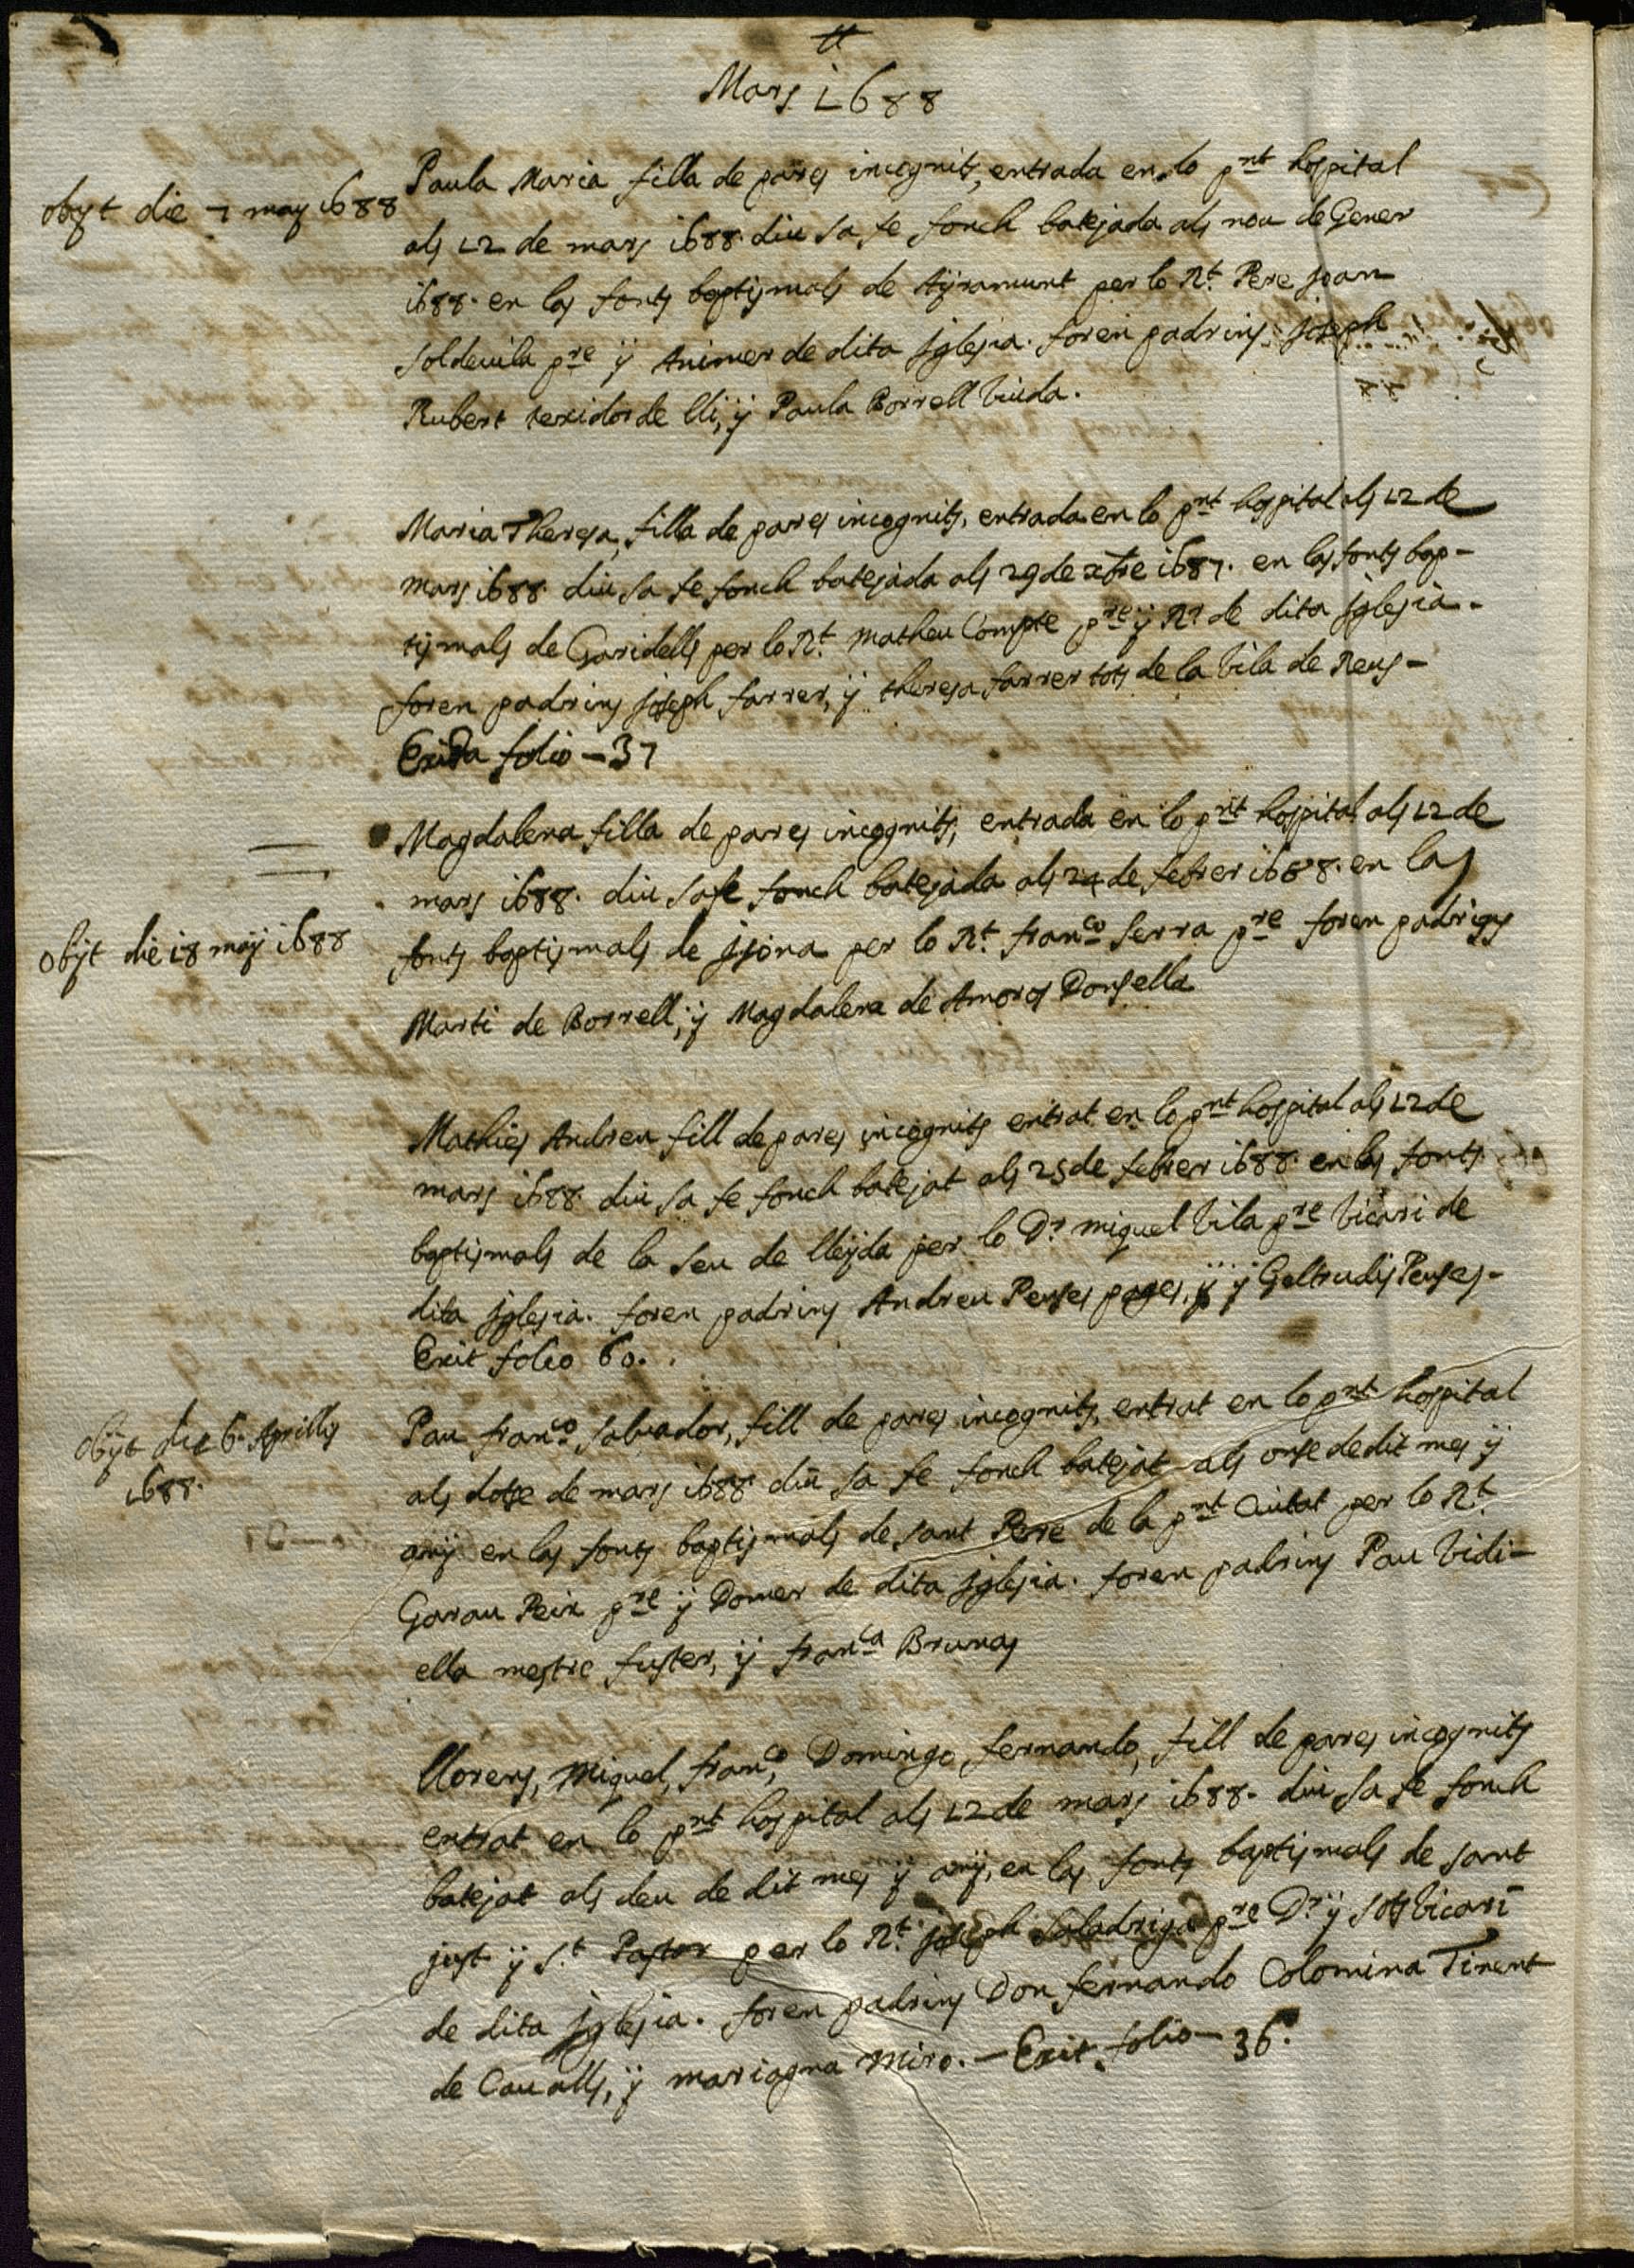 tt
Mars 1688
obyt die 7 may 1688
Paula Maria filla de pares incognits, entrada en lo pnt hospital
als 12 de mars 1688. diu sa fe fonch batejada als nou de Gener
1688. en las fonts baptismals de Ayramunt per lo Rt. Pere Joan
Soldevila pre y Animer de dita Iglesia. foren padrins Joseph
Rubert texidor de lli, y Paula Borrell viuda.
Maria Theresa, filla de pares incognits, entrada en lo pnt hospital als 12 de
mars 1688. diu sa fe fonch batejada als 29 de xbre 1687. en las fonts bap-
tismals de Garidells per lo Rt. Matheu Compte pre y Rr de dita Iglesia.
foren padrins Joseph farrer, y theresa farrer tots de la vila de Reus-
Exida folio - 37
Magdalena filla de pares incognits, entrada en lo pnt hospital als 12 de
mars 1688. diu sa fe fonch batejada als 24 de febrer 1688. en las
obyt die 18 maij 1688
fonts baptismals de Isona per lo Rt. franco Serra pre foren padrins
Marti de Borrell, y Magdalena de Amoros Donsella
Mathies Andreu fill de pares incognits entrat en lo pnt hospital als 12 de
mars 1688. diu sa fe fonch batejat als 25 de febrer 1688. en las fonts
baptismals de la Seu de lleyda per lo Dr. Miquel Vila pre Vicari de
dita Iglesia. foren padrins Andreu Penses pages, y y Geltrudis Penses-
Exit folio 60.
obijt die 6. Aprillis
1688.
Pau franco. Salvador, fill de pares incognits, entrat en lo pnt hospital
als dotse de mars 1688. diu sa fe fonch batejat als onse de dit mes y
any en las fonts baptismals de sant Pere de la pnt Ciutat per lo Rt.
Garau Peix pre y Domer de dita Iglesia. foren padrins Pau Vidi-
ella mestre fuster, y franca Brunas
llorens, Miquel, franco, Domingo, fernando, fill de pares incognits
entrat en lo pnt hospital als 12 de mars 1688. diu sa fe fonch
batejat als deu de dit mes y any, en las fonts baptismals de sant
just y St. Pastor per lo Rt. Joseph Saladriga pre Dr. y sots Vicari
de dita Iglesia. foren padrins Don fernando Colomina Tinent
de Cavalls, y mariagna Miro. - Exit folio - 36.